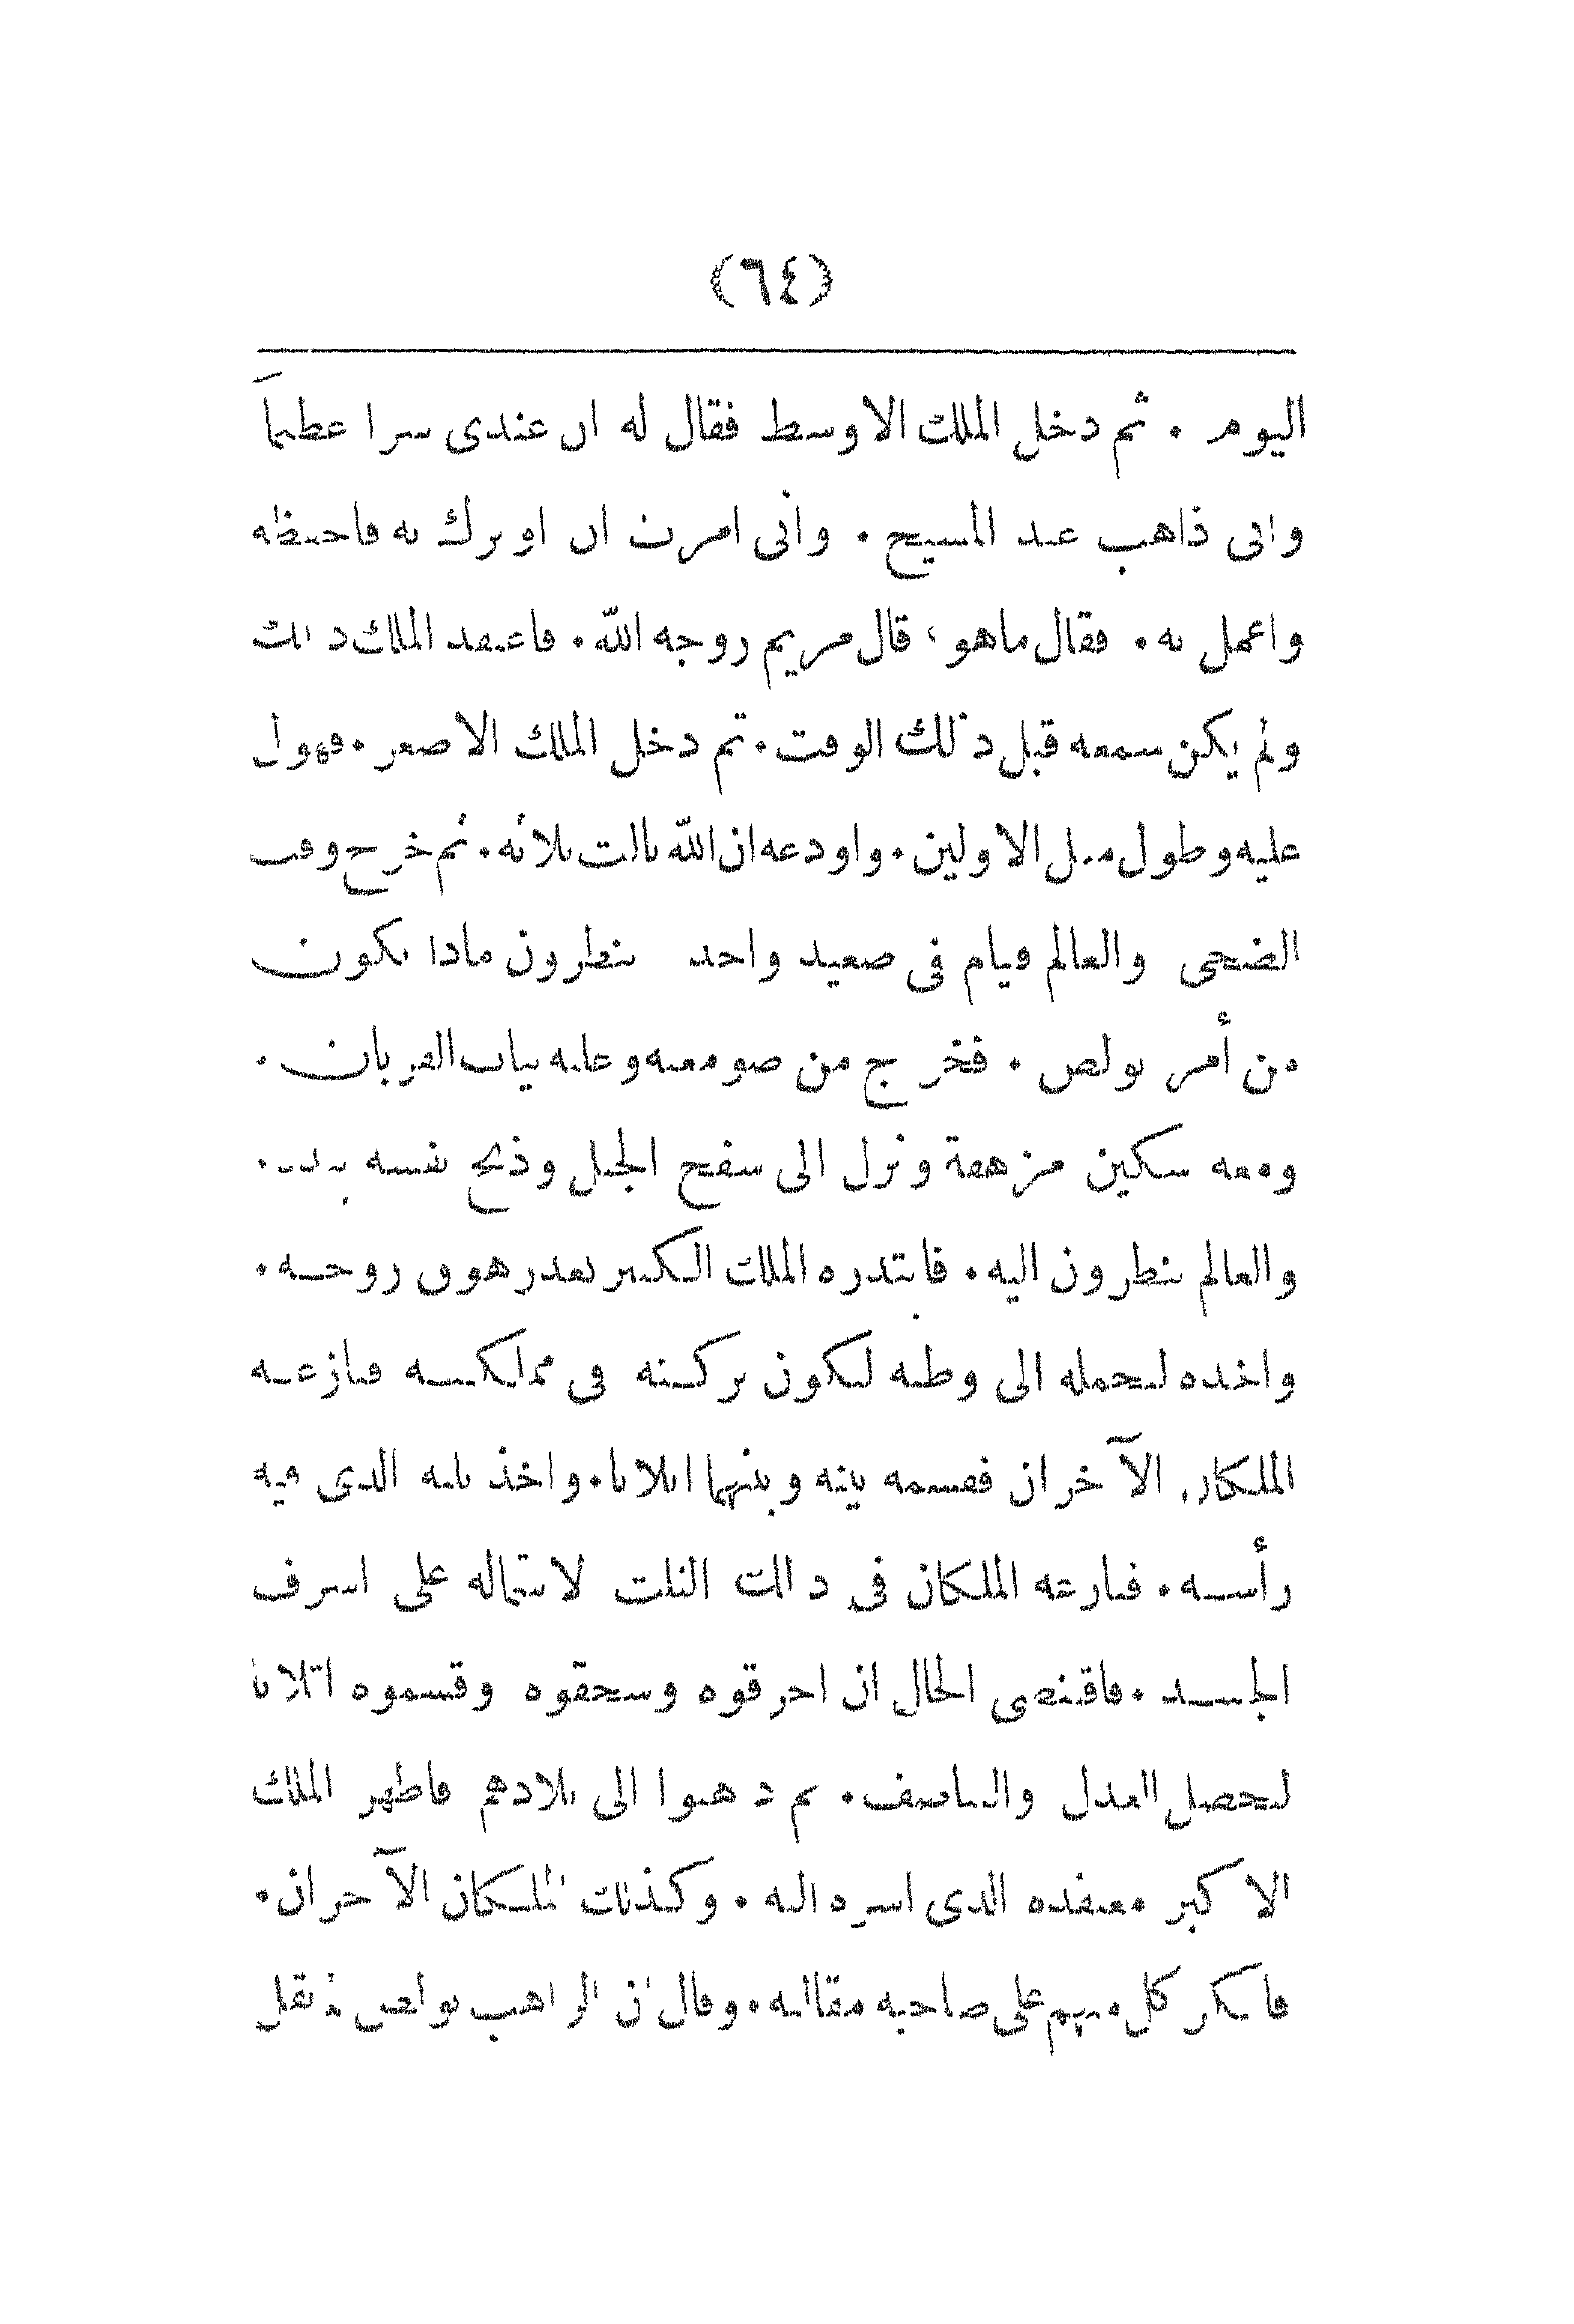 (٦٤)
اليوم . ثم دخل الملك الاوسط فقال له ان عندى سرا عظيماً
وانى ذاهب عند المسيح . وانى امرت ان اوثرك به فاحفظه
واعمل به . فقال ماهو ، قال مريم زوجه الله . فاعتقد الملك ذلك
ولم يكن سمعه قبل ذلك الوقت . ثم دخل الملك الاصغر . فهول
عليه وطول مثل الاولين . واودعه ان الله ثالث ثلاثه . ثم خرج وقت
الضحى والعالم قيام فى صعيد واحد ينظرون ماذا يكون
من أمر بولص . فخرج من صومعته وعليه ثياب القربان .
ومعه سكين مرهفة ونزل الى سفح الجبل وذبح نفسه بيده .
والعالم ينظرون اليه . فابتدره الملك الكبير بعد زهوق روحه .
واخذه ليحمله الى وطنه لتكون بركته فى مملكته فنازعه
الملكان الآخران فقسمه بينه وبينهما اثلاثا . واخذ ثلثه الذى فيه
رأسه . فنازعه الملكان فى ذلك الثلث لاشتماله على اشرف
الجسد . فاقتضى الحال ان احرقوه وسحقوه وقسموه اثلاثا
ليحصل العدل والتناصف . ثم ذهبوا الى بلادهم فاظهر الملك
الاكبر معتقده الذى اسره اليه . وكذلك الملكان الآخران .
فانكر كل منهم على صاحبه مقالته . وقال ان الراهب بولص لم يقل